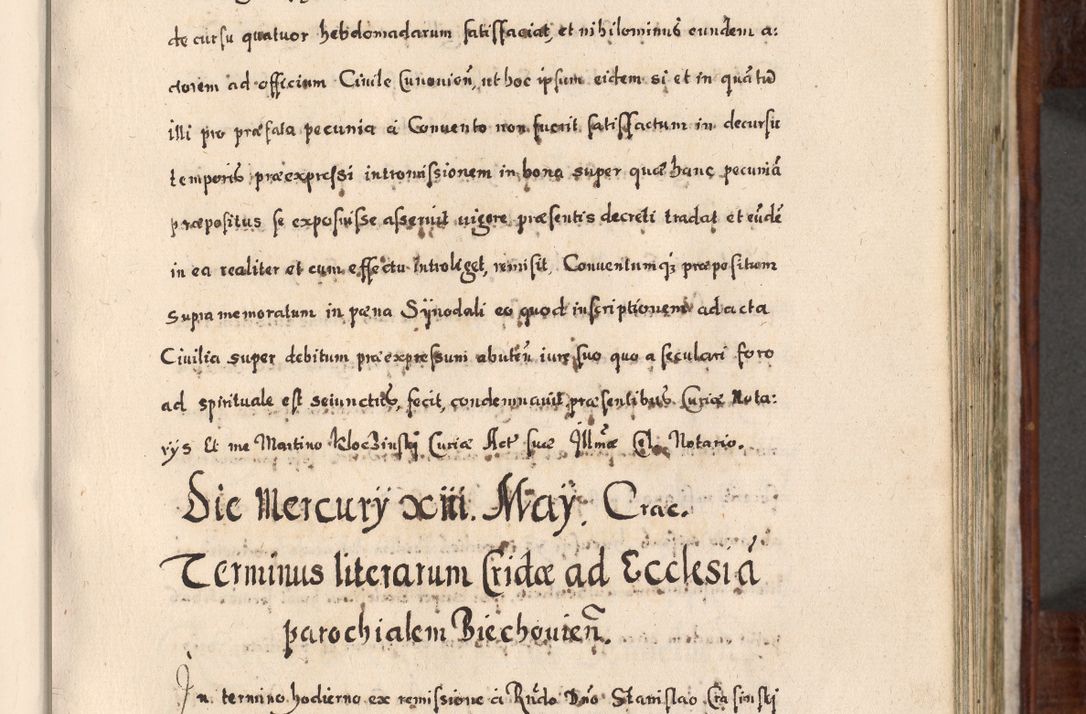 decursu quatuor hebdomadarum satisfaciat, et nihilominus eundem a:
ctorem ad officium Civile Cunonien̄, ut hoc ipsum eidem si et in quātū
illi pro præfata pecunia à Convento non fuerit satisfactum in decursu
temporis præexpressi intromissionem in bona super quæ hanc pecuniā
præpositus se exposuisse asseruit vigore præsentis decreti tradat et eūdē
in ea realiter et cum effectu introliget, remisit, Conventumq; præpositum
supra memoratum in pœna Sÿnodali eo quod inscriptionem ad acta
Civilia super debitum præexpressum abuten̄ iure suo quo a seculari foro
ad spirituale est seiunctus, fecit, condemnavit præsentibus Curiæ Nota:
rijs Et me Martino Kloczinskj Curiæ Act suæ Illmæ Cel: Notario.
Die Mercurÿ xiii. Maÿ. Crac.
Terminus literarum Cridæ ad Ecclesiā
parochialem Biechovien̄.
In termino hodierno ex remissione à Rn̄do Dn̄o Stanislao Crasinskj